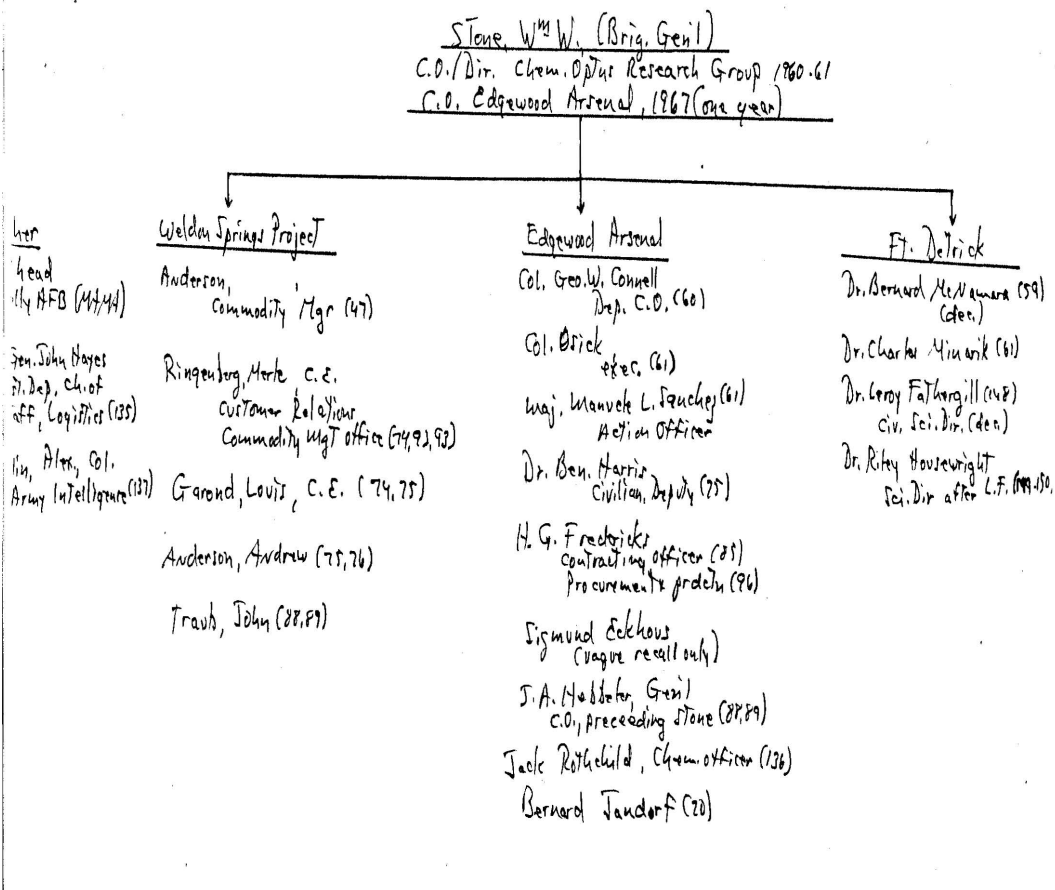 Stone, Wm W. (Brig. Gen'l)
C.O./Dir. Chem. Optns Research Group 1960-61
C.O. Edgewood Arsenal, 1967 (one year)
her
head
lly AFB (MAMA)
Gen. John Hayes
t. Dep. Ch. of
aff, Logistics (135)
lin, Alex, Col.
Army Intelligence (137)
Weldon Springs Project
Anderson,
Commodity Mgr (47)
Ringenberg, Merle C.E.
Customer Relations
Commodity Mgt office (74,92,93)
Garond, Louis, C.E. (74,75)
Anderson, Andrew (75,76)
Traub, John (88,89)
Edgewood Arsenal
Col. Geo. W. Connell
Dep. C.O. (60)
Col. Osick
exec. (61)
Maj. Manuele L. Sanchez (61)
Action Officer
Dr. Ben. Harris
Civilian, Deputy (75)
H. G. Fredericks
contracting officer (85)
Procurement & prdctn (96)
Sigmund Eckhous
(vague recall only)
J.A. Hebbeler, Gen'l
C.O., preceeding Stone (88,89)
Jack Rothchild, Chem. officer (136)
Bernard Jandorf (20)
Ft. Detrick
Dr. Bernard McNamara (59)
(dec.)
Dr. Charles Minarik (61)
Dr. Leroy Fathergill (148)
Civ. Sci. Dir. (dec.)
Dr. Riley Housewright
Sci. Dir after L.F. (149-150,